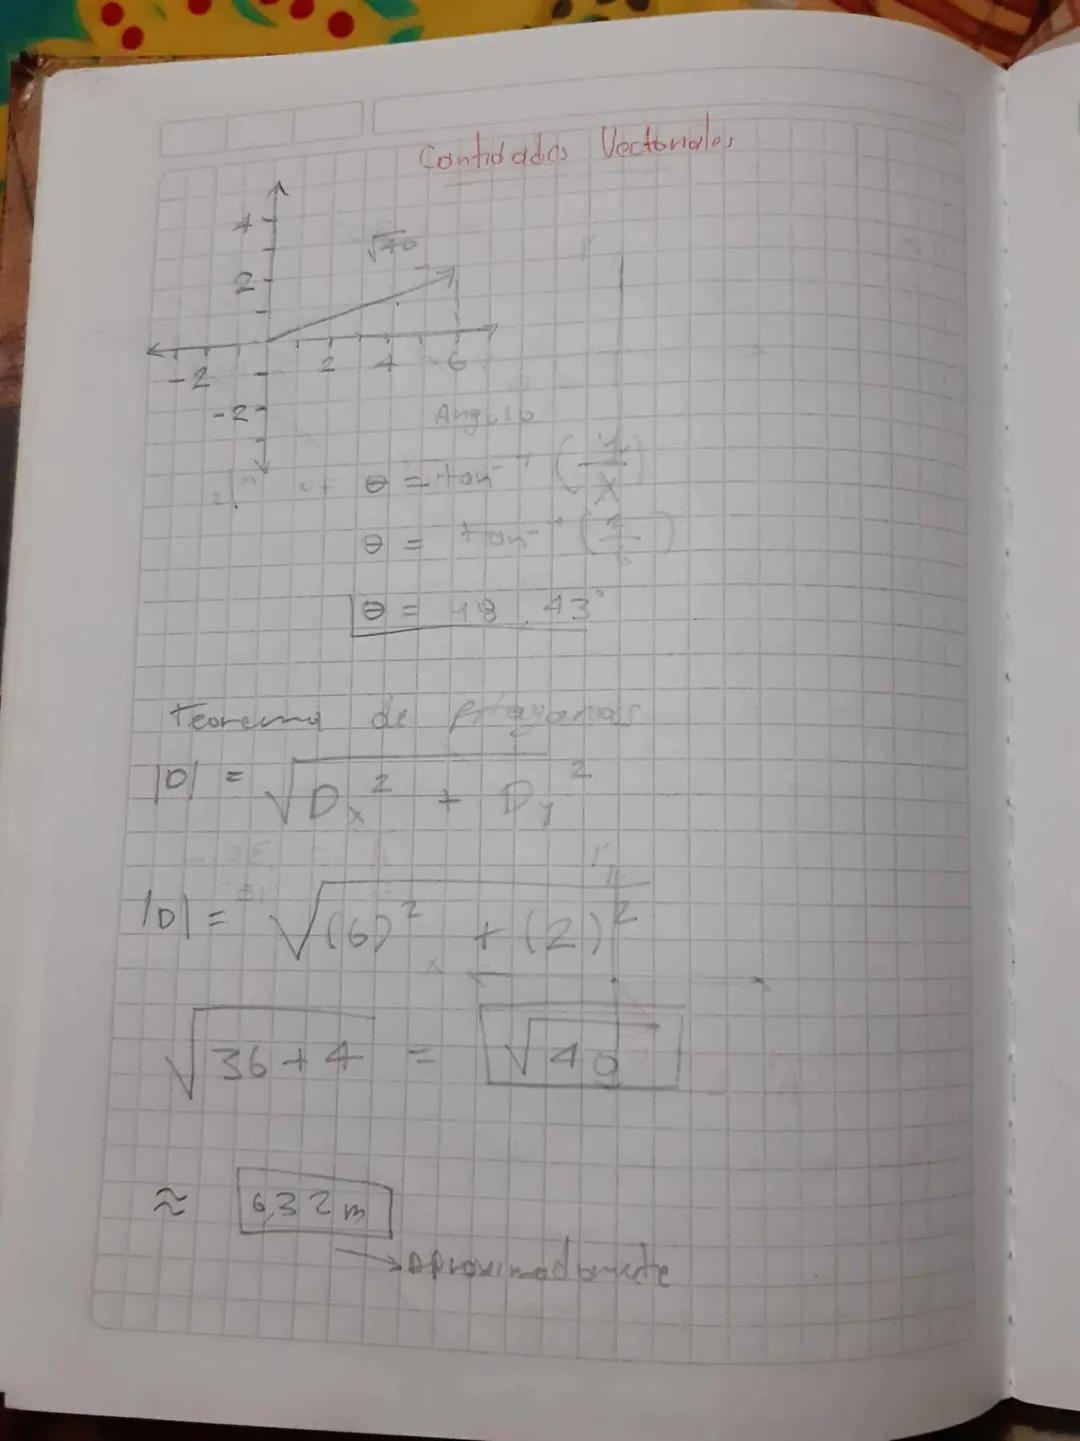 Cantidades Vectoriales
4
√40
2
-2 2 4 6
-2
Angulo
θ = tan⁻¹ (y/x)
θ = tan⁻¹ (2/6)
θ = 18,43°
Teorema de Pitagoras
|D| = √Dx² + Dy²
|D| = √(6)² + (2)²
√36+4 = √40
≈ 6,32 m
→ Aproximadamente